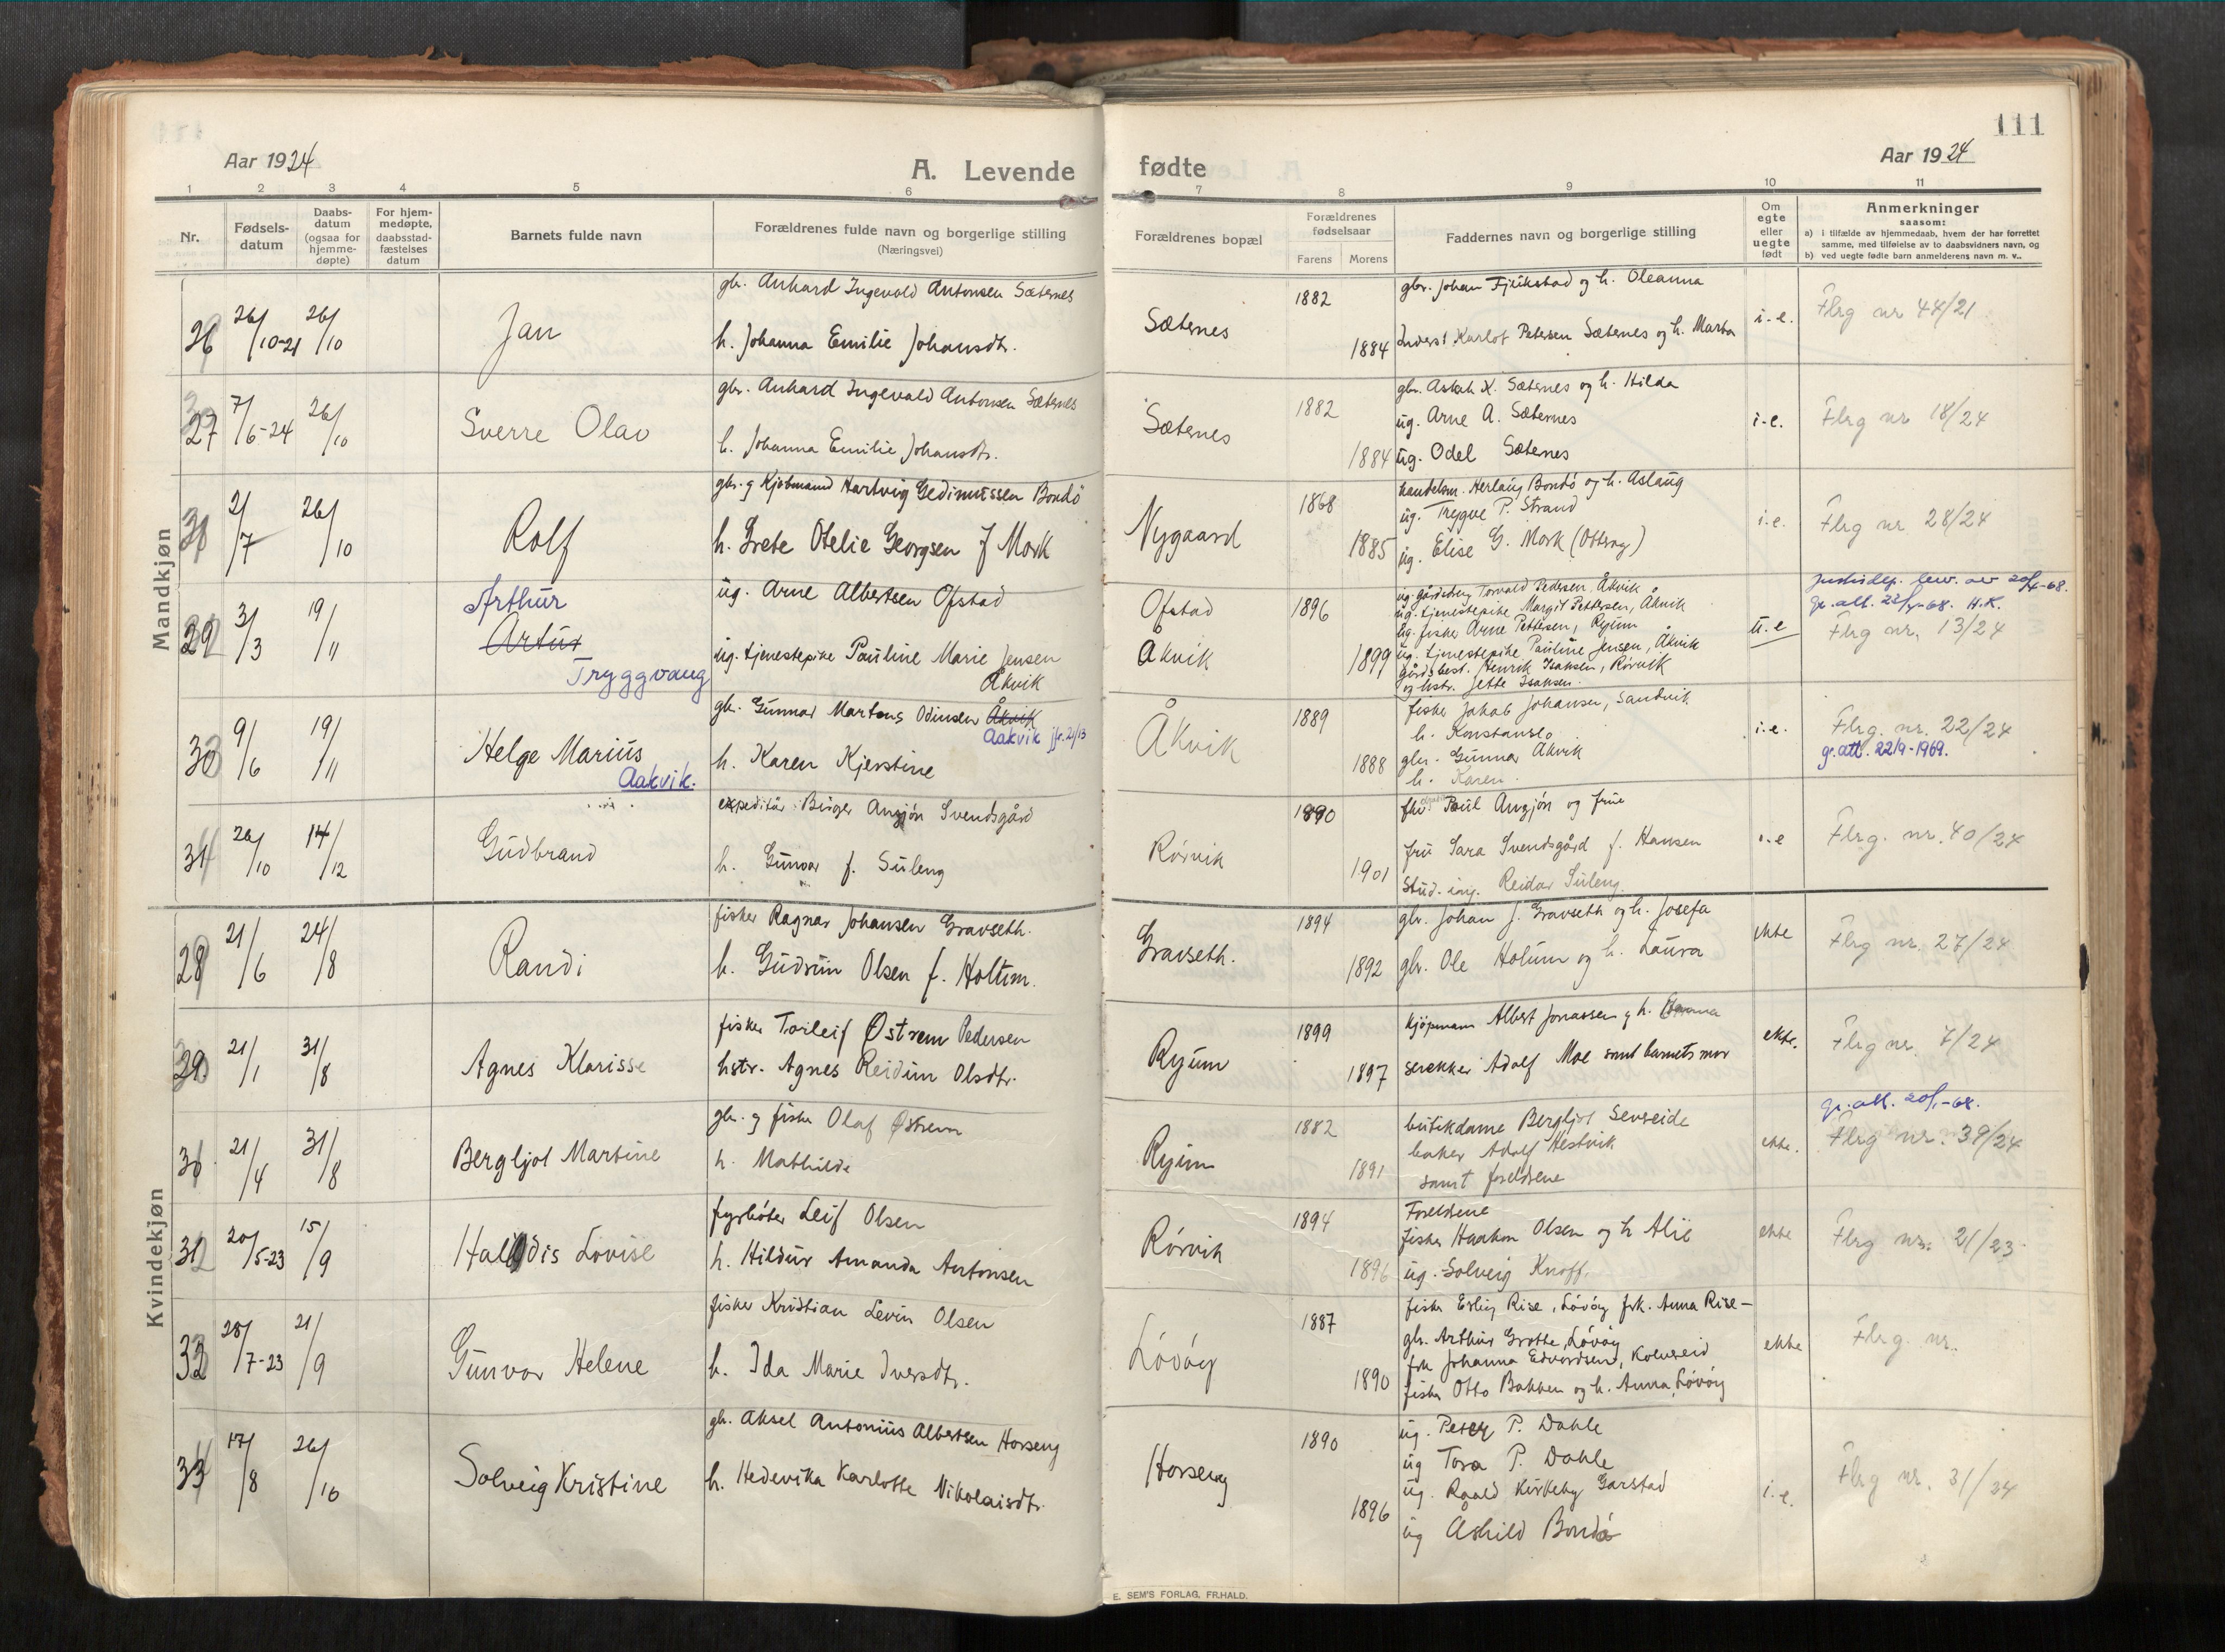 111
Aar 1924
A. Levende fødte
Aar 1924
1 2 3 4 5 6 7 8 9 10 11
Nr.
Fødsels-
datum
Daabs-
datum
(ogsaa for
hjemme-
døpte)
For hjem-
medøpte,
daabsstad-
fæstelses
datum
Barnets fulde navn
Forældrenes fulde navn og borgerlige stilling
(Næringsvei)
Forældrenes bopæl
Forældrenes
fødselsaar
Farens Morens
Faddernes navn og borgerlige stilling
Om
egte
eller
uegte
født
Anmerkninger
saasom:
a) i tilfælde av hjemmedaab, hvem der har forrettet
samme, med tilføielse av to daabsvidners navn, og
b) ved uegte fødte barn anmelderens navn m. v..
Mandkjøn
26 26/10-21 26/10
Jan
gbr. Anhard Ingevald Antonsen Sæternes
h. Johanna Emilie Johansdtr.
Sæternes
1882
1884
gbr. Johan Fjukstad og h. Oleanna
Karlot Petersen Sæternes og h. Marta
i.e.
Flrg nr 44/21
27 7/6-24 26/10
Sverre Olav
gbr. Anhard Ingevald Antonsen Sæternes
h. Johanna Emilie Johansdtr.
Sæternes
1882
1884
gbr. Aslak K. Sæternes og h. Hilda
ug. Arne A. Sæternes
ug. Odel Sæternes
i.e.
Flrg nr 18/24
2/7 26/10
Rolf
gbr. g Kjøbmand Hartvig Gedimussen Bondø
h. Grete Otelie Georgsen f Mork
Nygaard
1868
1885
handelsm. Herlaug Bondø og h. Aslaug
ug. Trygve P. Strand
ug. Elise G. Mork (Otterøy)
i.e.
Flrg nr 28/24
29 31/3 19/11
Arthur
Artur
Tryggvaug
ug. Arne Albertsen Ofstad
ug. tjenestepike Pauline Marie Jensen
Åkvik
Ofstad
Åkvik
1896
1899
ug. gårdsbrug Torvald Pedersen Åkvik
ug. tjenestepike Margit Pettersen, Åkvik
ug. fisker Arne Pettersen, Ryum
ug. tjenestepike Pauline Jensen, Åkvik
gårdsbest. Henrik Isaksen, Rørvik
og hstr. Jette Isaksen.
u.e
Justisdep. bew. av 20/4-68.
gr. att. 22/4-68. H.K.
Flrg nr. 13/24
30 9/6 19/11
Helge Marius
Aakvik.
gbr. Gunnar Martens Odinsen Åkvik
Aakvik jfr. 21/13
h. Karen Kjerstine
Åkvik
1889
1888
fisker Jakob Johansen, Sandvik.
h. Konstanse
gbr. Gunnar Åkvik
h. Karen.
i.e.
Flrg. nr. 22/24
gr. att. 22/9-1969.
31 26/10 14/12
Gudbrand
expeditør Birger Angjón Svendsgård
h. Gunvor f. Suleng
Rórvik
1890
1901
Paul Angjón og frue
fru Sara Svendsgård f. Hansen
stud. ing. Reidar Suleng.
i.e
Flrg. nr. 40/24
Kvindekjøn
28 21/6 24/8
Randi
fisker Ragnar Johansen Gravseth.
h. Gudrun Olsen f. Holum.
Gravseth.
1894
1892
gbr. Johan J. Gravseth og h. Josefa
gbr. Ole Holum og h. Laura
ekte
Flrg nr. 27/24
29 21/1 31/8
Agnes Klarisse
fisker Torleif Østrem Pedersen
hstr. Agnes Reidun Olsdtr.
Ryum
1899
1897
kjøpmann Albert Jonassen g h. Hanna
serekker Adolf Moe samt barnets mor
ekte.
Flrg nr. 7/24
30 21/4 31/8
Bergljot Martine
gbr. g fisker Olaf Østrem
h. Mathilde
Ryum
1882
1891
butikdame Bergljot Sevreide
baker Adolf Hestvik
samt foreldrene
ekte.
gr. att. 20/1-68.
Flrg nr. 39/24
31 20/5-23 15/9
Halldis Lovise
fyrbóter Leif Olsen
h. Hildur Amanda Antonsen
Rórvik
1894
1896
Foreldrene
fisker Haakon Olsen og h Alie
ug. Solveig Knoff.
ekte
Flrg nr. 21/23
32 28/7-23 21/9
Gunvor Helene
fisker Kristian Levin Olsen
h. Ida Marie Iversdtr.
Lóvóy
1887
1890
fisker Erling Rise, Lóvóy frk. Anna Rise-
gbr. Arthur Grotte, Lóvóy
frk Johanna Edvardsen, Kolvereid
fisker Otto Bakken og h. Anna, Lóvóy
ekte
Flrg. nr.
33 17/8 26/10
Solveig Kristine
gbr. Aksel Antonius Albertsen Horseng
h. Hedevika Karlotte Nikolaisdtr.
Horseng
1890
1896
ug. Peter P. Dahle
ug Tora P. Dahle
ug. Roald Kirkeby Garstad
ug Åshild Bondó
i.e.
Flrg nr. 31/24
E. SEM'S FORLAG, FR.HALD.